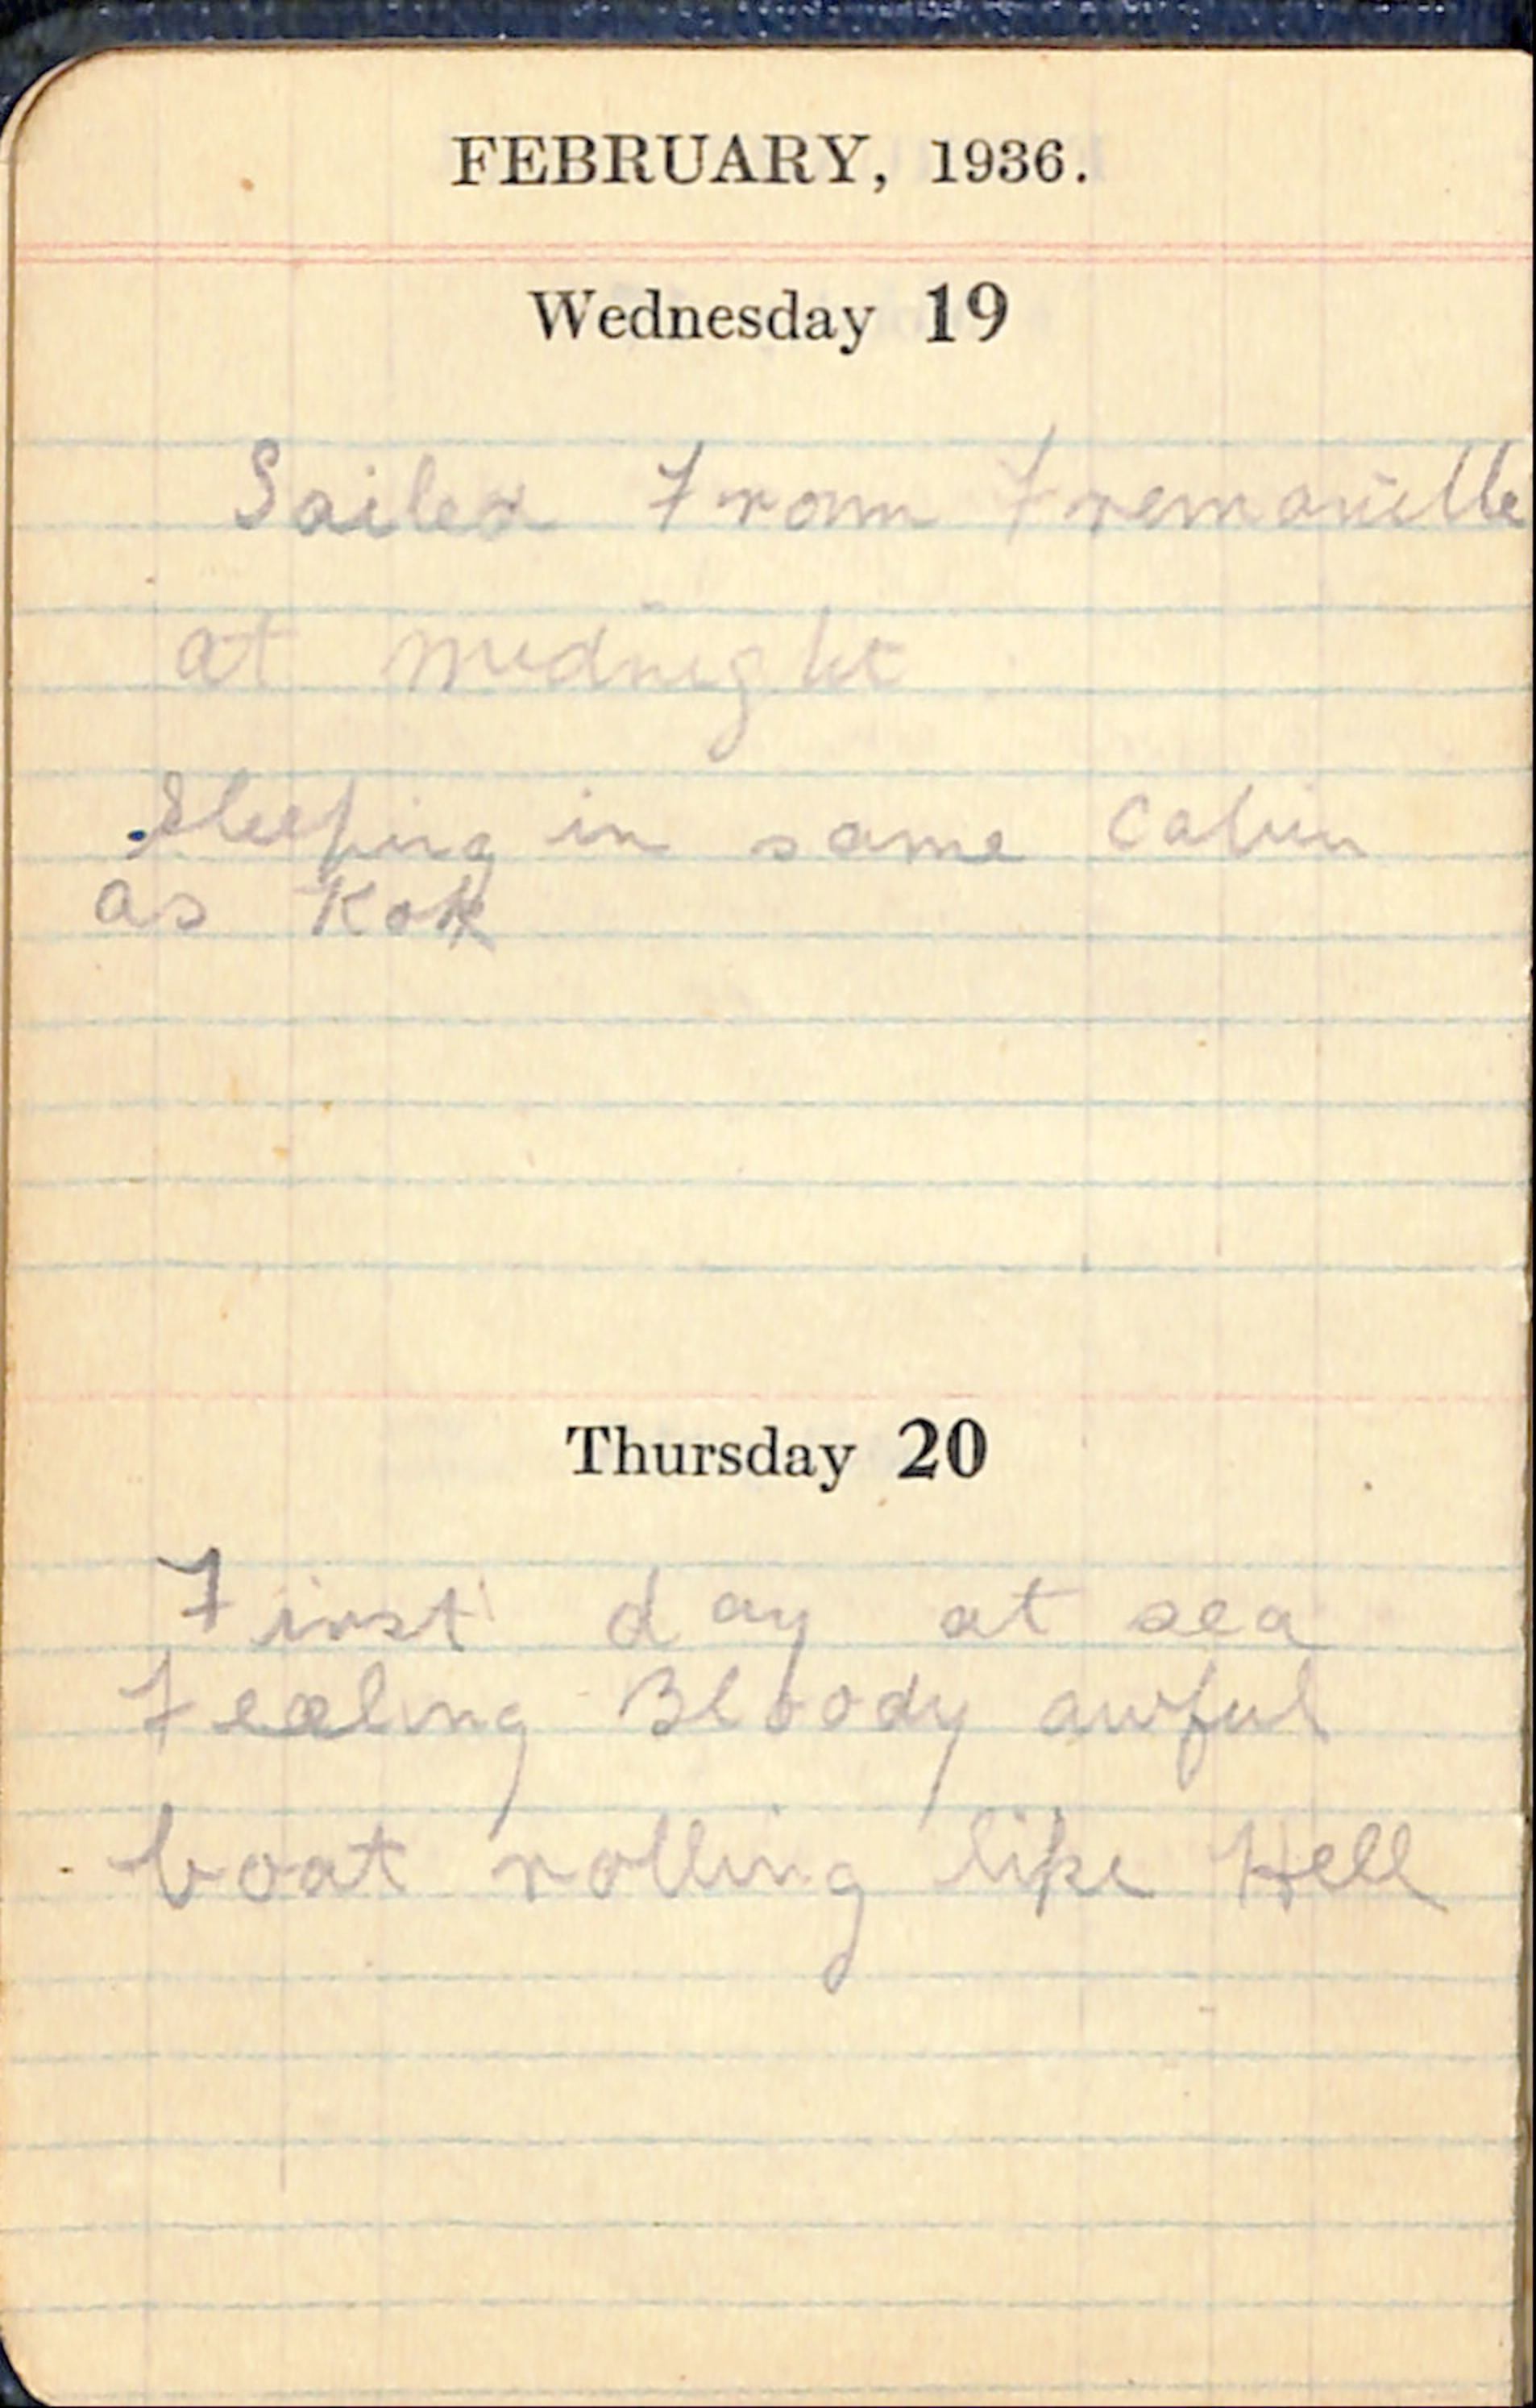 FEBRUARY, 1936.
Wednesday 19
Sailed From
at midnight
Sleeping in same Cabin
as Kok
Thursday 20
First day at sea
Feeling Bloody awful
boat rolling like Hell